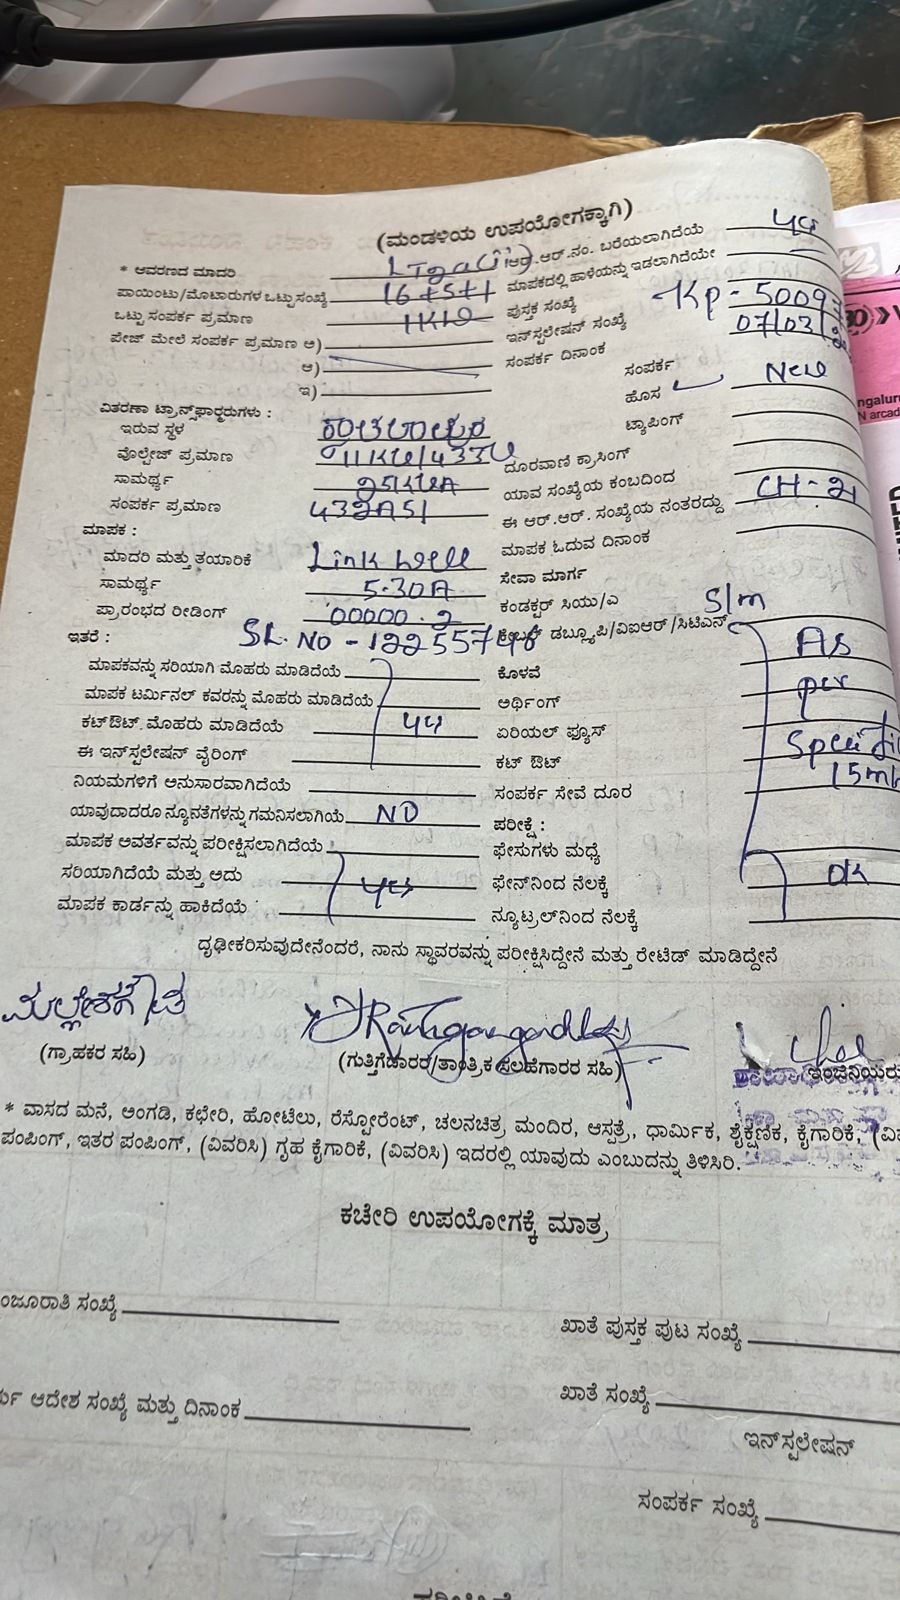 (ಮಂಡಳಿಯ ಉಪಯೋಗಕ್ಕಾಗಿ)
* ಆವರಣದ ಮಾದರಿ
ಆರ್.ಆರ್.ನಂ. ಬರೆಯಲಾಗಿದೆಯೆ
ಪಾಯಿಂಟು/ಮೊಟಾರುಗಳ ಒಟ್ಟು ಸಂಖ್ಯೆ 16+5+1
ಮಾಪಕದಲ್ಲಿ ಹಾಳೆಯನ್ನು ಇಡಲಾಗಿದೆಯೇ
ಒಟ್ಟು ಸಂಪರ್ಕ ಪ್ರಮಾಣ 1KW
ಪುಸ್ತಕ ಸಂಖ್ಯೆ
ಪೇಜ್ ಮೇಲೆ ಸಂಪರ್ಕ ಪ್ರಮಾಣ ಅ)
ಇನ್‌ಸ್ಪಲೇಷನ್ ಸಂಖ್ಯೆ KP-5009
ಆ)
ಸಂಪರ್ಕ ದಿನಾಂಕ 07/03/
ಇ)
ಸಂಪರ್ಕ New
ಹೊಸ
ವಿತರಣಾ ಟ್ರಾನ್ಸ್‌ಫಾರ್ಮರುಗಳು :
ಟ್ಯಾಪಿಂಗ್
ಇರುವ ಸ್ಥಳ
ವೊಲ್ಟೇಜ್ ಪ್ರಮಾಣ 11KV/433V
ದೂರವಾಣಿ ಕ್ರಾಸಿಂಗ್
ಸಾಮರ್ಥ್ಯ 25KVA
ಯಾವ ಸಂಖ್ಯೆಯ ಕಂಬದಿಂದ
ಸಂಪರ್ಕ ಪ್ರಮಾಣ
ಈ ಆರ್.ಆರ್. ಸಂಖ್ಯೆಯ ನಂತರದ್ದು CH-21
ಮಾಪಕ :
ಮಾಪಕ ಓದುವ ದಿನಾಂಕ
ಮಾದರಿ ಮತ್ತು ತಯಾರಿಕೆ Link well
ಸೇವಾ ಮಾರ್ಗ
ಸಾಮರ್ಥ್ಯ 5-30A
ಕಂಡಕ್ಟರ್ ಸಿಯು/ಎ S/m
ಪ್ರಾರಂಭದ ರೀಡಿಂಗ್ 00000.2
ಡಬ್ಲ್ಯೂಪಿ/ವಿಐಆರ್/ಸಿಟಿಎನ್
ಇತರೆ : SL.NO - 12255748
ಮಾಪಕವನ್ನು ಸರಿಯಾಗಿ ಮೊಹರು ಮಾಡಿದೆಯೆ
ಕೊಳವೆ As
ಮಾಪಕ ಟರ್ಮಿನಲ್ ಕವರನ್ನು ಮೊಹರು ಮಾಡಿದೆಯೆ
ಅರ್ಥಿಂಗ್ per
ಕಟ್‌ಔಟ್ ಮೊಹರು ಮಾಡಿದೆಯೆ
ಏರಿಯಲ್ ಫ್ಯೂಸ್
ಈ ಇನ್‌ಸ್ಪಲೇಷನ್ ವೈರಿಂಗ್
ಕಟ್ ಔಟ್
ನಿಯಮಗಳಿಗೆ ಅನುಸಾರವಾಗಿದೆಯೆ
ಸಂಪರ್ಕ ಸೇವೆ ದೂರ
ಯಾವುದಾದರೂ ನ್ಯೂನತೆಗಳನ್ನು ಗಮನಿಸಲಾಗಿಯೆ NO
ಪರೀಕ್ಷೆ :
ಮಾಪಕ ಅವರ್ತವನ್ನು ಪರೀಕ್ಷಿಸಲಾಗಿದೆಯೆ
ಫೇಸುಗಳು ಮಧ್ಯೆ
ಸರಿಯಾಗಿದೆಯೆ ಮತ್ತು ಅದು
ಫೇಸ್‌ನಿಂದ ನೆಲಕ್ಕೆ OK
ಮಾಪಕ ಕಾರ್ಡನ್ನು ಹಾಕಿದೆಯೆ
ನ್ಯೂಟ್ರಲ್‌ನಿಂದ ನೆಲಕ್ಕೆ
ದೃಢೀಕರಿಸುವುದೇನೆಂದರೆ, ನಾನು ಸ್ಥಾವರವನ್ನು ಪರೀಕ್ಷಿಸಿದ್ದೇನೆ ಮತ್ತು ರೇಟೆಡ್ ಮಾಡಿದ್ದೇನೆ
ಮಲ್ಲೇಶಗೌಡ
(ಗ್ರಾಹಕರ ಸಹಿ)
(ಗುತ್ತಿಗೆದಾರರ/ತಾಂತ್ರಿಕ ಸಲಹೆಗಾರರ ಸಹಿ)
* ವಾಸದ ಮನೆ, ಅಂಗಡಿ, ಕಛೇರಿ, ಹೋಟೆಲು, ರೆಸ್ಟೋರೆಂಟ್, ಚಲನಚಿತ್ರ, ಮಂದಿರ, ಆಸ್ಪತ್ರೆ, ಧಾರ್ಮಿಕ, ಶೈಕ್ಷಣಿಕ, ಕೈಗಾರಿಕೆ,
ಪಂಪಿಂಗ್, ಇತರ ಪಂಪಿಂಗ್, (ವಿವರಿಸಿ) ಗೃಹ ಕೈಗಾರಿಕೆ, (ವಿವರಿಸಿ) ಇದರಲ್ಲಿ ಯಾವುದು ಎಂಬುದನ್ನು ತಿಳಿಸಿರಿ.
ಕಚೇರಿ ಉಪಯೋಗಕ್ಕೆ ಮಾತ್ರ
ಸಂಖ್ಯೆ
ಖಾತೆ ಪುಸ್ತಕ ಪುಟ ಸಂಖ್ಯೆ
ಆದೇಶ ಸಂಖ್ಯೆ ಮತ್ತು ದಿನಾಂಕ
ಖಾತೆ ಸಂಖ್ಯೆ
ಇನ್‌ಸ್ಪಲೇಷನ್
ಸಂಪರ್ಕ ಸಂಖ್ಯೆ